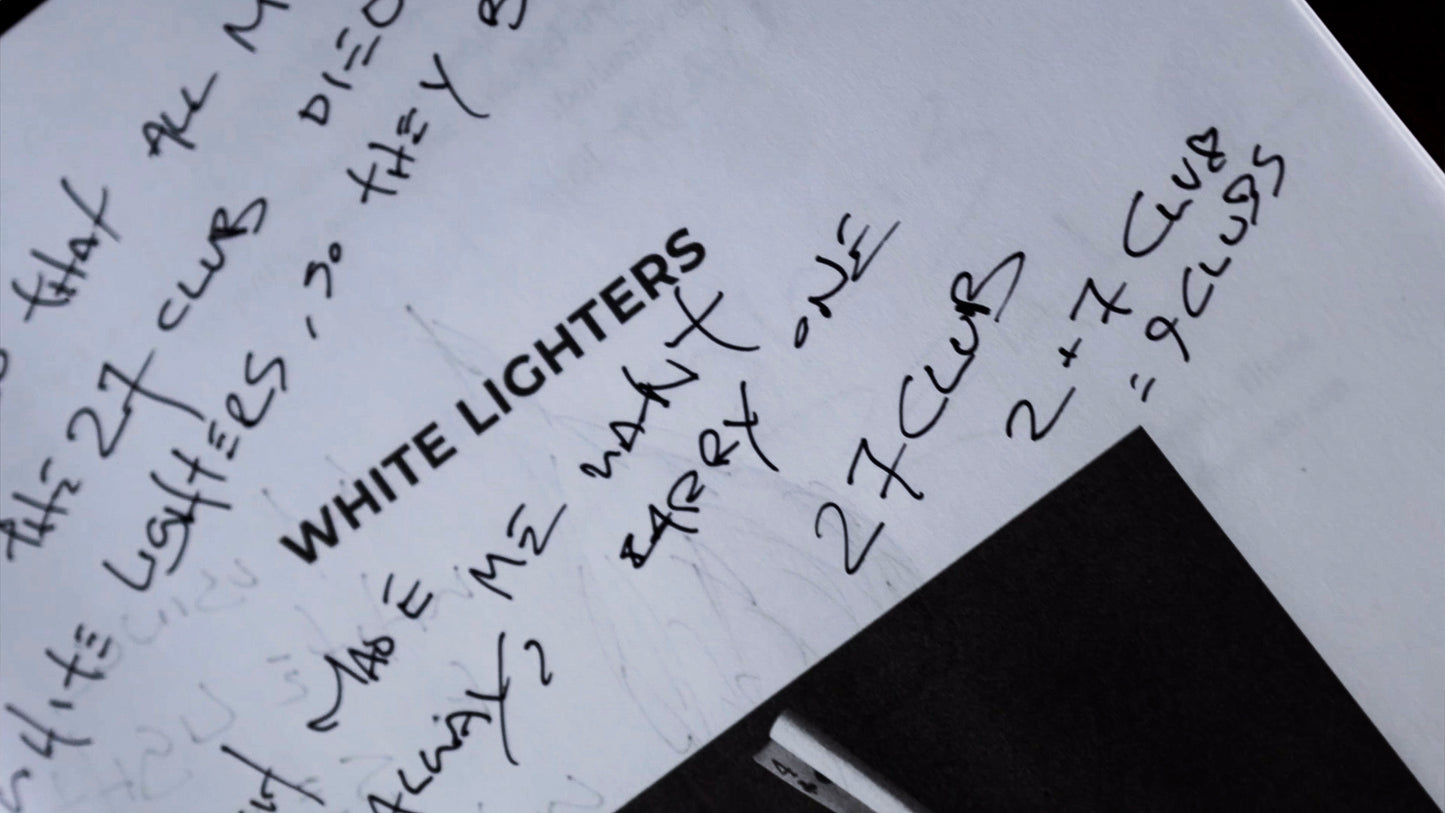 THAT ALL M
THE 27 CLUB DIED
WHITE LIGHTERS, SO THEY B
WHITE LIGHTERS
MADE ME WANT
ALWAY? CARRY ONE
27 CLUB
2+7 CLUB
= 9 CLUBS